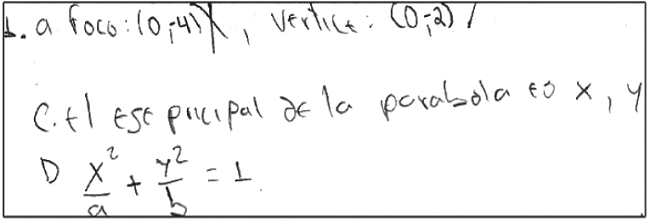 1. a foco: (0,-4) , vertice: (0,-2) /
C. El ese pricipal de la parabola es x, y
D x²/a + y²/b = 1